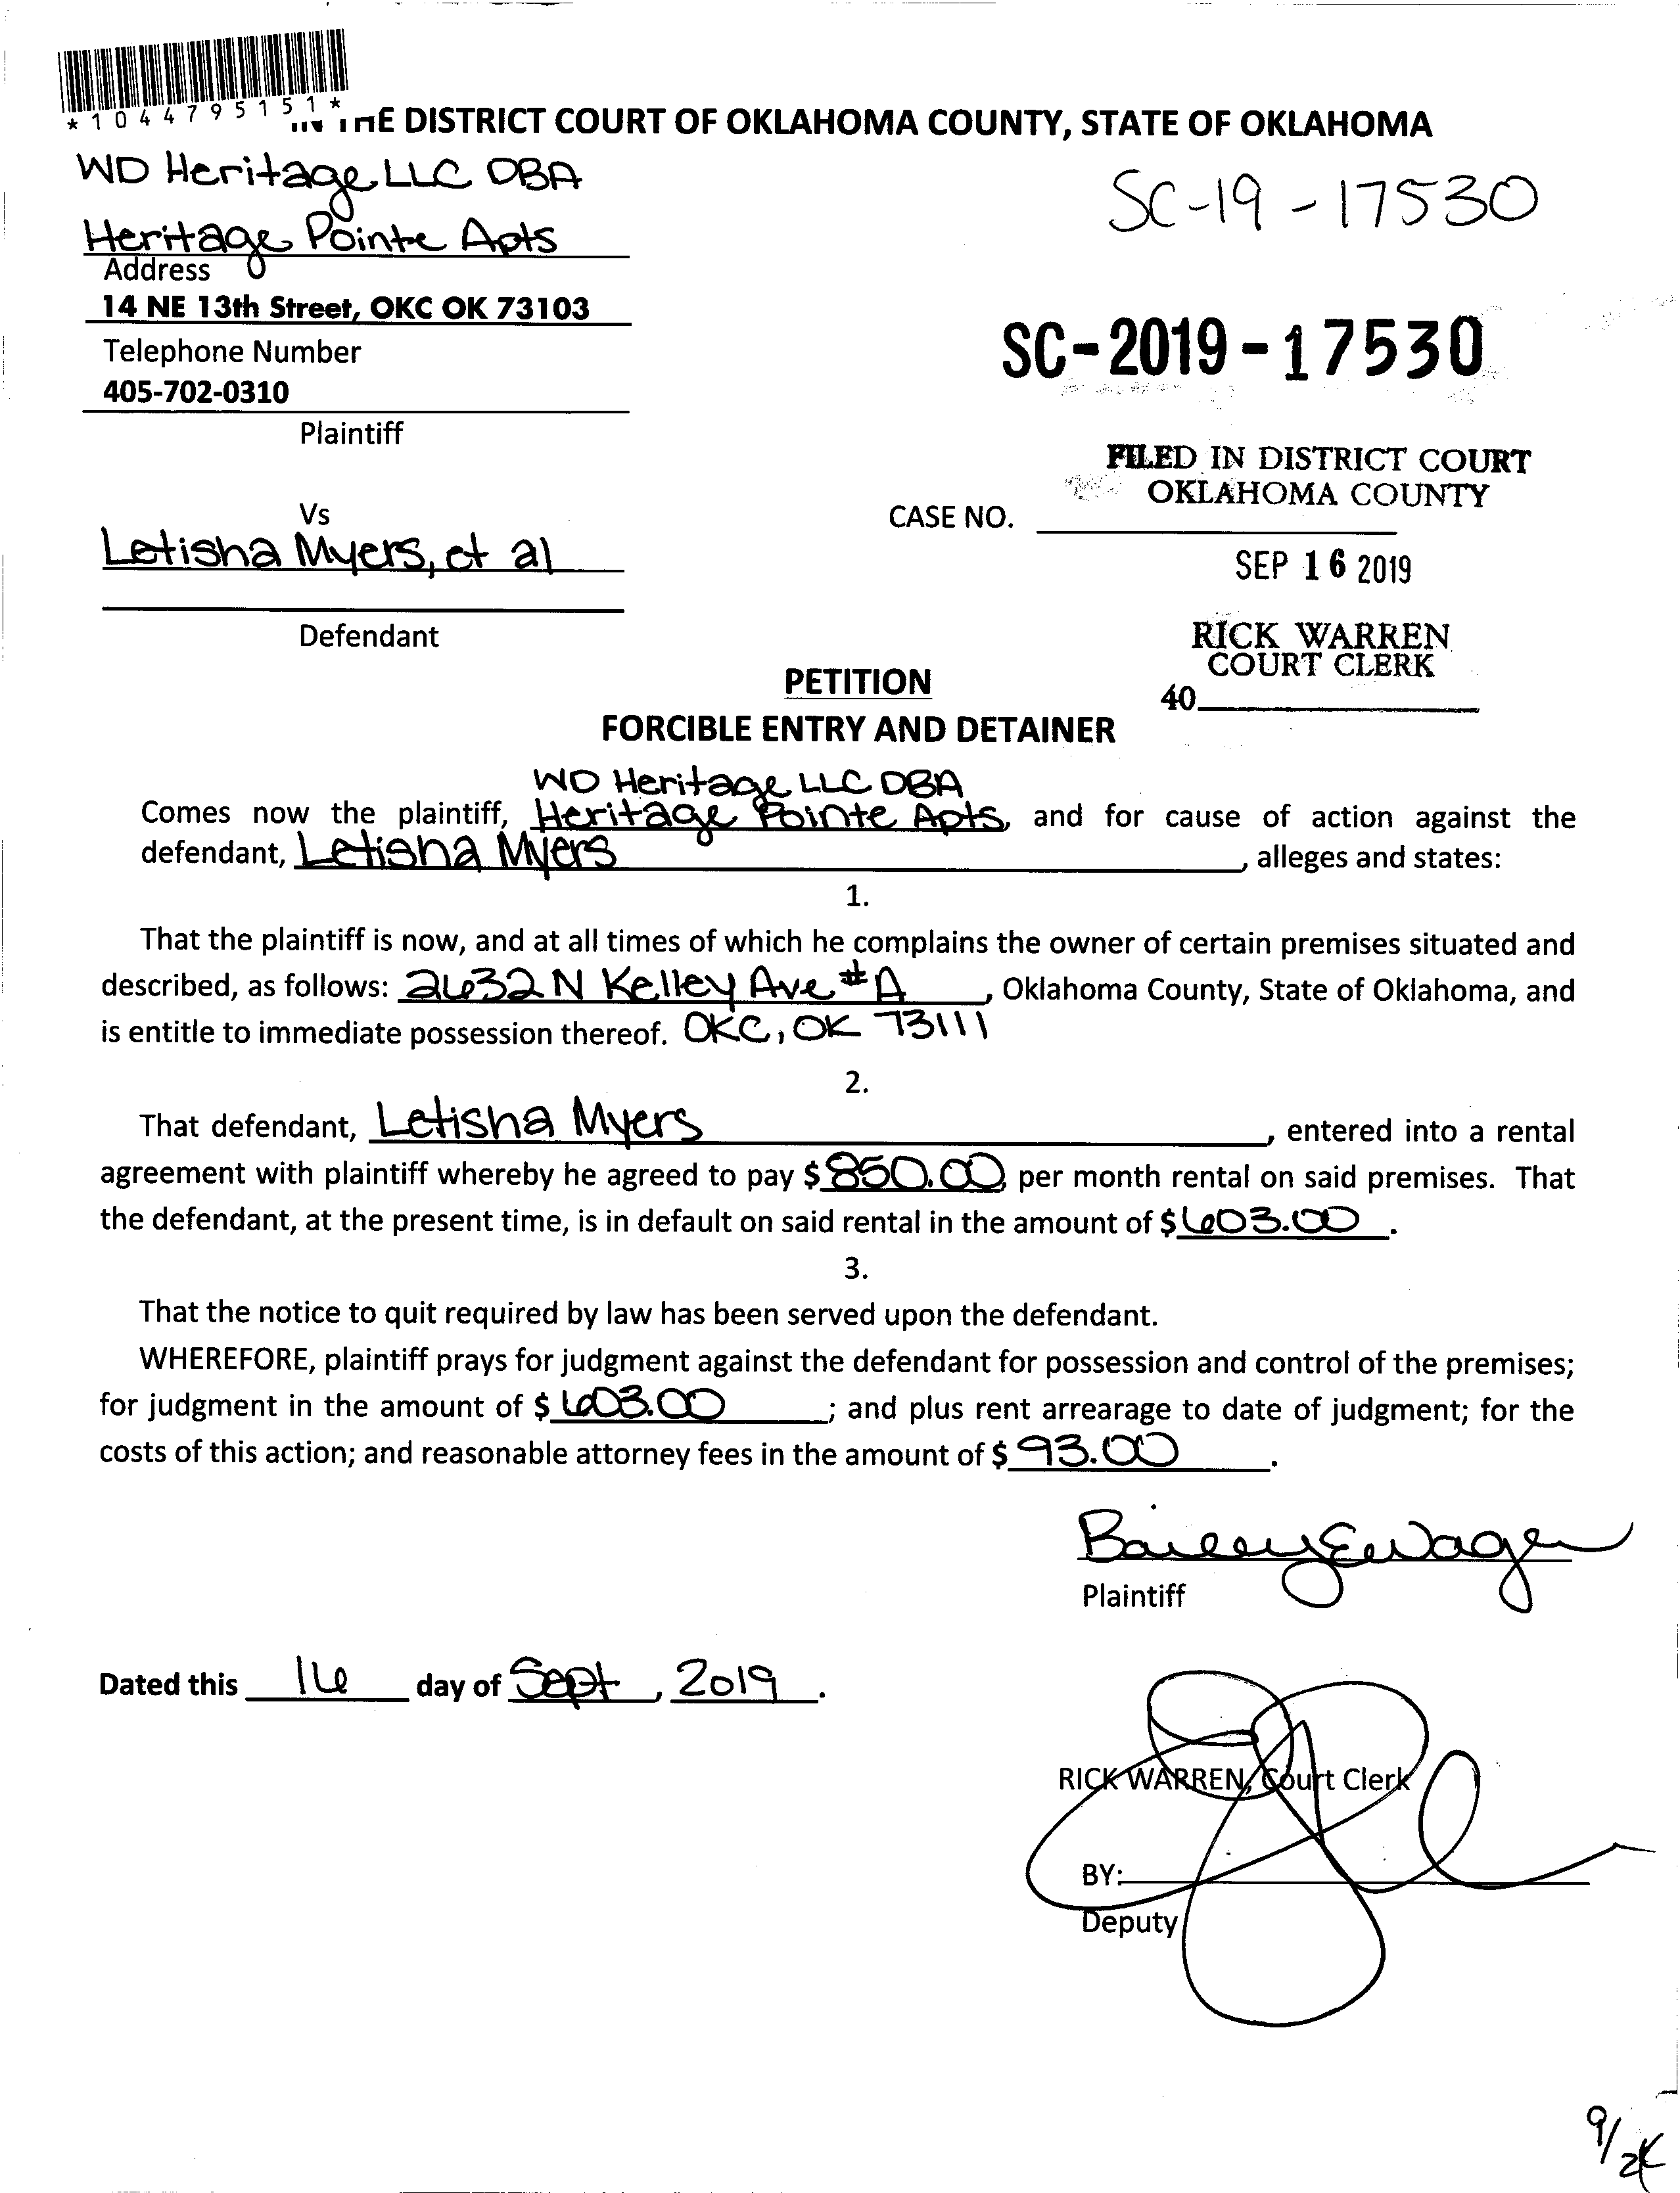 *1044795151*
IN THE DISTRICT COURT OF OKLAHOMA COUNTY, STATE OF OKLAHOMA
WD Heritage LLC DBA
Heritage Pointe Apts
SC-19-17530
Address
14 NE 13th Street, OKC OK 73103
Telephone Number
405-702-0310
SC-2019-17530
Plaintiff
FILED IN DISTRICT COURT
OKLAHOMA COUNTY
Vs
CASE NO.
Letisha Myers, et al
SEP 16 2019
Defendant
RICK WARREN
COURT CLERK
40
PETITION
FORCIBLE ENTRY AND DETAINER
WD Heritage LLC DBA
Comes now the plaintiff, Heritage Pointe Apts, and for cause of action against the
defendant, Letisha Myers, alleges and states:
1.
That the plaintiff is now, and at all times of which he complains the owner of certain premises situated and
described, as follows: 2632 N Kelley Ave #A, Oklahoma County, State of Oklahoma, and
is entitle to immediate possession thereof. OKC, OK 73111
2.
That defendant, Letisha Myers, entered into a rental
agreement with plaintiff whereby he agreed to pay $850.00, per month rental on said premises. That
the defendant, at the present time, is in default on said rental in the amount of $603.00.
3.
That the notice to quit required by law has been served upon the defendant.
WHEREFORE, plaintiff prays for judgment against the defendant for possession and control of the premises;
for judgment in the amount of $603.00; and plus rent arrearage to date of judgment; for the
costs of this action; and reasonable attorney fees in the amount of $93.00.
Plaintiff
Dated this 16 day of Sept, 2019.
RICK WARREN, Court Clerk
BY:
Deputy